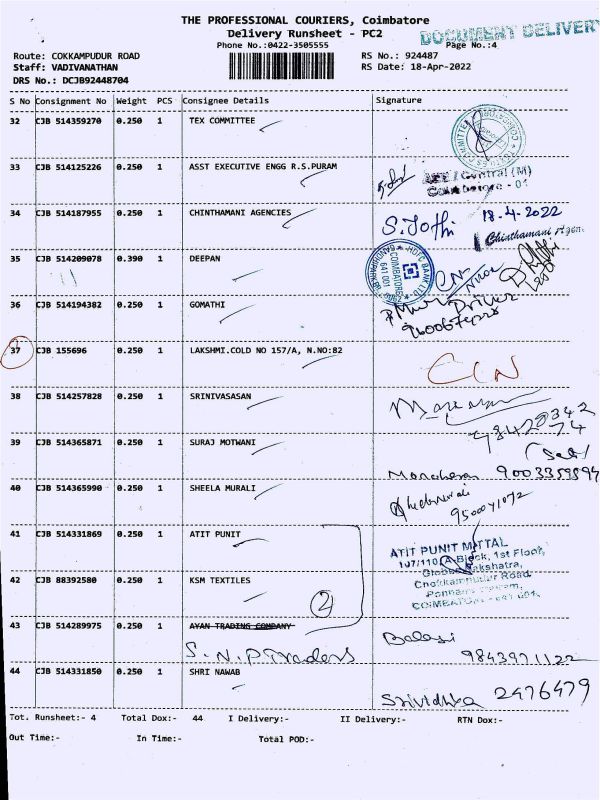 THE PROFESSIONAL COURIERS, Coimbatore
Delivery Runsheet - PC2
DOCUMENT DELIVERY
Phone No.:0422-3505555
Page No.:4
Route: COKKAMPUDUR ROAD
RS No.: 924487
Staff: VADIVANATHAN
RS Date: 18-Apr-2022
DRS No.: DCJB92448704
S No Consignment No Weight PCS Consignee Details Signature
32 CJB 514359270 0.250 1 TEX COMMITTEE
33 CJB 514125226 0.250 1 ASST EXECUTIVE ENGG R.S.PURAM
AEE / Central (M)
Coimbatore - 01
34 CJB 514187955 0.250 1 CHINTHAMANI AGENCIES
S. Jothi 18-4-2022
Chinthamani Agen
35 CJB 514209078 0.390 1 DEEPAN
HDFC BANK LTD
COIMBATORE
641 001
36 CJB 514194382 0.250 1 GOMATHI
Driver
37 CJB 155696 0.250 1 LAKSHMI.COLD NO 157/A, N.NO:82
C/N
38 CJB 514257828 0.250 1 SRINIVASASAN
39 CJB 514365871 0.250 1 SURAJ MOTWANI
Manoharan
40 CJB 514365990 0.250 1 SHEELA MURALI
41 CJB 514331869 0.250 1 ATIT PUNIT
ATIT PUNIT MITTAL
107/110 A Block, 1st Floor,
Chokkampudur Road
COIMBATORE - 641 001.
42 CJB 88392580 0.250 1 KSM TEXTILES
2
43 CJB 514289975 0.250 1 AYAN TRADING COMPANY
S.N.P Traders
Balaji
9843971122
44 CJB 514331850 0.250 1 SHRI NAWAB
Srividhya 2476479
Tot. Runsheet:- 4 Total Dox:- 44 I Delivery:- II Delivery:- RTN Dox:-
Out Time:- In Time:- Total POD:-